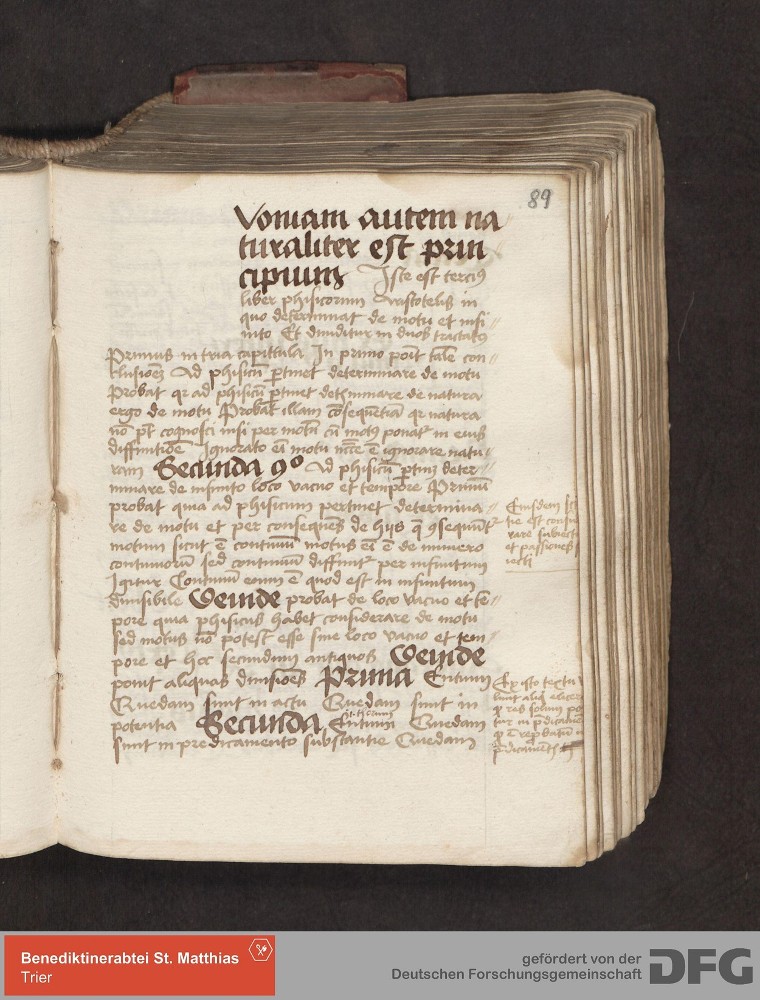 89
Voniam autem na
turaliter est prin
cipium Iste est terciꝰ
liber phisicorum Aristotelis in
quo determinat de motu et infi
nito Et diuiditur in duos tractatꝰ
Primus in tria capittula In primo poīt talē con
clusionē Ad phisicū ꝑtinet determinare de motu
Probat qr ad phisicū ꝑtinet determinare de natura
ergo de motu Probat illam cōsequētia qr natura
nō pt cognosci nisi per motū cū motꝰ ponat in eius
diffinitiōe Ignorato eī motu ncc̄e ē ignorare natu
ram Secunda 9o Ad phisicū ꝑtinꝫ deter
minare de infinito loco vacuo et tempore Primū
probat quia ad phisicum pertinet determina
re de motu et per consequēs de hijs q̄ ↄsequūt
motum sicut ē continuū motus eī ē de numero
continuorū sed continuū diffinit per infinitum
Igitur Continuū enim ē quod est in infinitum
diuisibile Deinde probat de loco vacuo et tē
pore quia phisicus habet considerare de motu
sed motus nō potest esse sine loco vacuo et tem
pore et hoc secundum antiquos Deinde
ponit aliquas diuisiōes Prima Entium
Quedam sunt in actu Quedam sunt in
potentia Secunda Entium Quedam
sunt in predicamento substantie Quedam
Eiusdem
tie est
rare subiect
et passiones
iecti
Ex isto textu
qꝫ res solum
tur in p̄dicamē
Benediktinerabtei St. Matthias
Trier
gefördert von der
Deutschen Forschungsgemeinschaft DFG